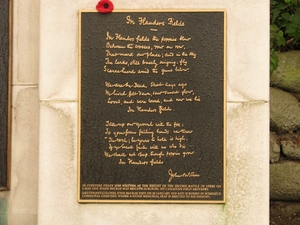 In Flanders Fields
In Flanders fields the poppies
Between the crosses, row on row,
That mark our place; and in the sky
The larks, still bravely singing, fly
Scarce heard amid the guns below.
We are the Dead. Short days ago
We lived, felt dawn, saw sunset glow,
Loved, and were loved, and now we lie
In Flanders fields.
Take up our quarrel with the foe:
To you from failing hands we throw
The torch; be yours to hold it high.
If ye break faith with us who die
We shall not sleep, though poppies grow
In Flanders fields
John McCrae
IN FLANDERS FIELDS WAS WRITTEN AT THE HEIGHT OF THE SECOND BATTLE OF YPRES ON